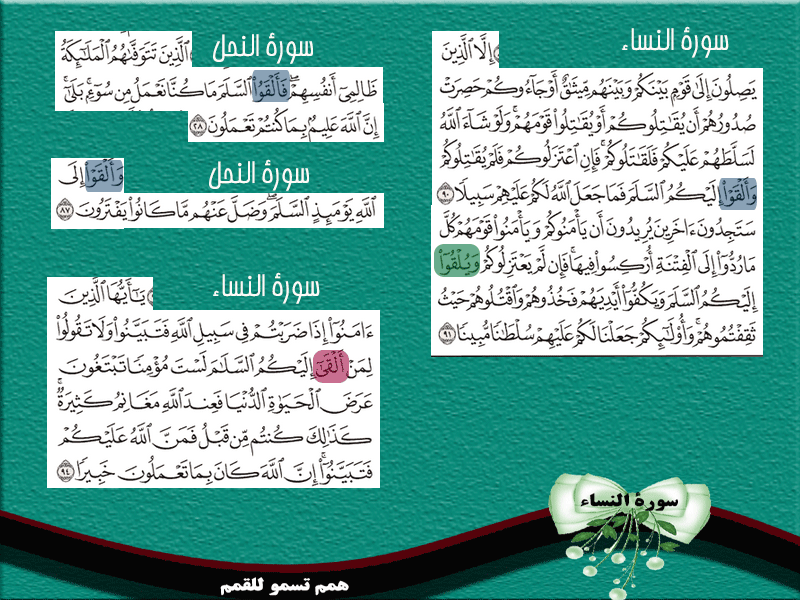 سورة النساء
إِلَّا الَّذِينَ
يَصِلُونَ إِلَىٰ قَوْمٍ بَيْنَكُمْ وَبَيْنَهُم مِّيثَٰقٌ أَوْ جَآءُوكُمْ حَصِرَتْ
صُدُورُهُمْ أَن يُقَٰتِلُوكُمْ أَوْ يُقَٰتِلُوا۟ قَوْمَهُمْ ۚ وَلَوْ شَآءَ ٱللَّهُ
لَسَلَّطَهُمْ عَلَيْكُمْ فَلَقَٰتَلُوكُمْ ۚ فَإِنِ ٱعْتَزَلُوكُمْ فَلَمْ يُقَٰتِلُوكُمْ
وَأَلْقَوْا۟ إِلَيْكُمُ ٱلسَّلَمَ فَمَا جَعَلَ ٱللَّهُ لَكُمْ عَلَيْهِمْ سَبِيلًا ٩٠
سَتَجِدُونَ ءَاخَرِينَ يُرِيدُونَ أَن يَأْمَنُوكُمْ وَيَأْمَنُوا۟ قَوْمَهُمْ كُلَّ
مَا رُدُّوٓا۟ إِلَى ٱلْفِتْنَةِ أُرْكِسُوا۟ فِيهَا ۚ فَإِن لَّمْ يَعْتَزِلُوكُمْ وَيُلْقُوٓا۟
إِلَيْكُمُ ٱلسَّلَمَ وَيَكُفُّوٓا۟ أَيْدِيَهُمْ فَخُذُوهُمْ وَٱقْتُلُوهُمْ حَيْثُ
ثَقِفْتُمُوهُمْ ۚ وَأُو۟لَٰٓئِكُمْ جَعَلْنَا لَكُمْ عَلَيْهِمْ سُلْطَٰنًا مُّبِينًا ٩١
سورة النحل
ٱلَّذِينَ تَتَوَفَّىٰهُمُ ٱلْمَلَٰٓئِكَةُ
ظَالِمِىٓ أَنفُسِهِمْ ۖ فَأَلْقَوُا۟ ٱلسَّلَمَ مَا كُنَّا نَعْمَلُ مِن سُوٓءٍۭ ۚ بَلَىٰٓ
إِنَّ ٱللَّهَ عَلِيمٌۢ بِمَا كُنتُمْ تَعْمَلُونَ ٢٨
سورة النحل
وَأَلْقَوْا۟ إِلَى
ٱللَّهِ يَوْمَئِذٍ ٱلسَّلَمَ ۖ وَضَلَّ عَنْهُم مَّا كَانُوا۟ يَفْتَرُونَ ٨٧
سورة النساء
يَٰٓأَيُّهَا ٱلَّذِينَ
ءَامَنُوٓا۟ إِذَا ضَرَبْتُمْ فِى سَبِيلِ ٱللَّهِ فَتَبَيَّنُوا۟ وَلَا تَقُولُوا۟
لِمَنْ أَلْقَىٰٓ إِلَيْكُمُ ٱلسَّلَٰمَ لَسْتَ مُؤْمِنًا تَبْتَغُونَ
عَرَضَ ٱلْحَيَوٰةِ ٱلدُّنْيَا فَعِندَ ٱللَّهِ مَغَانِمُ كَثِيرَةٌ ۚ
كَذَٰلِكَ كُنتُم مِّن قَبْلُ فَمَنَّ ٱللَّهُ عَلَيْكُمْ
فَتَبَيَّنُوٓا۟ ۚ إِنَّ ٱللَّهَ كَانَ بِمَا تَعْمَلُونَ خَبِيرًا ٩٤
سورة النساء
همم تسمو للقمم